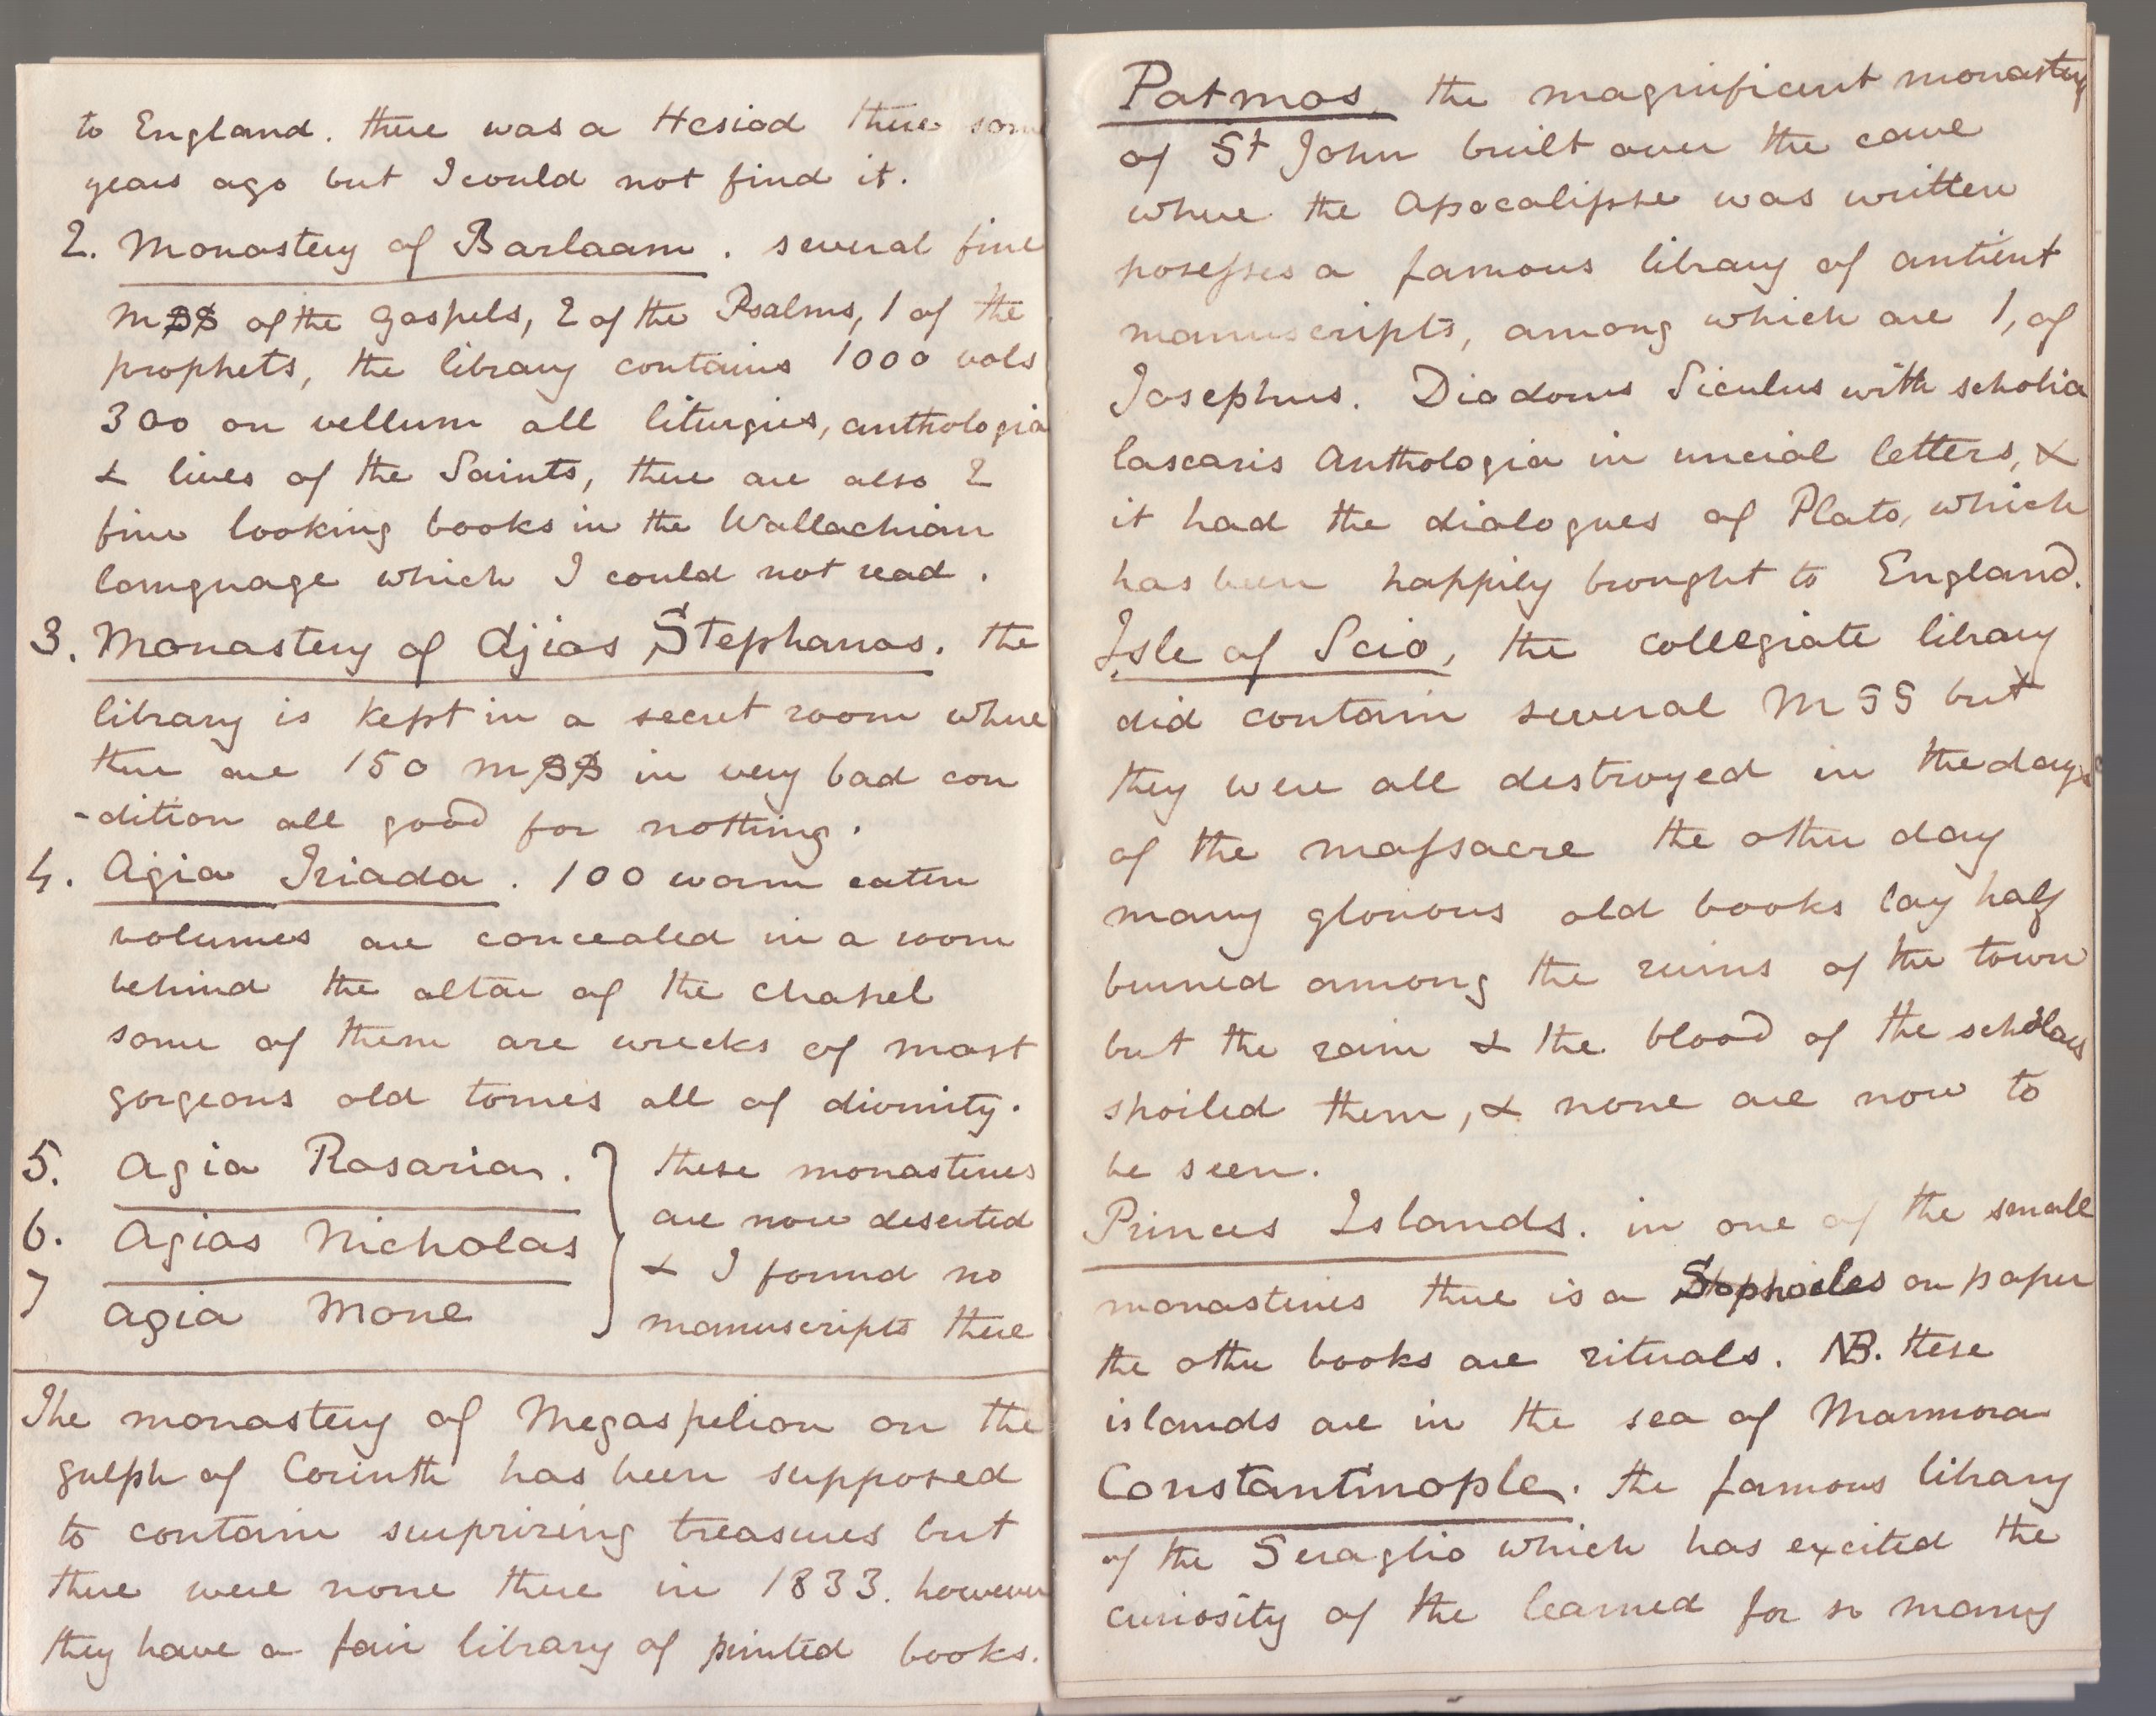 to England. there was a Hesiod there som
years ago but I could not find it.
2. Monastery of Barlaam. several fine
MSS of the Gospels, 2 of the Psalms, 1 of the
prophets, the library contains 1000 vols
300 on vellum all liturgies, anthologia
& lives of the Saints, there are also 2
fine looking books in the Wallachian
language which I could not read.
3. Monastery of Ajios Stephanos. the
library is kept in a secret room where
there are 150 MSS in very bad con
-dition all good for nothing.
4. Agia Triada. 100 worm eaten
volumes are concealed in a room
behind the altar of the chapel
some of them are wrecks of most
gorgeous old tomes all of divinity.
5. Agia Rosaria. these monasteries
6. Agios Nicholas are now deserted
& I found no
7 Agia Mone manuscripts there
The monastery of Megaspelion on the
gulph of Corinth has been supposed
to contain surprizing treasures but
there were none there in 1833. however
they have a fair library of printed books.
Patmos, the magnificent monastery
of St John built over the cave
where the Apocalipse was written
posesses a famous library of antient
manuscripts, among which are 1, of
Josephus. Diodorus Siculus with scholia
Lascaris Anthologia in uncial letters, &
it had the dialogues of Plato, which
has been happily brought to England.
Isle of Scio, the collegiate library
did contain several MSS but
they were all destroyed in the days
of the massacre the other day
many glorious old books lay half
burned among the ruins of the town
but the rain & the blood of the scholars
spoiled them, & none are now to
be seen.
Princes Islands. in one of the small
monasteries there is a Sophocles on paper
the other books are rituals. NB. these
islands are in the sea of Marmora
Constantinople. the famous library
of the Seraglio which has excited the
curiosity of the learned for so many